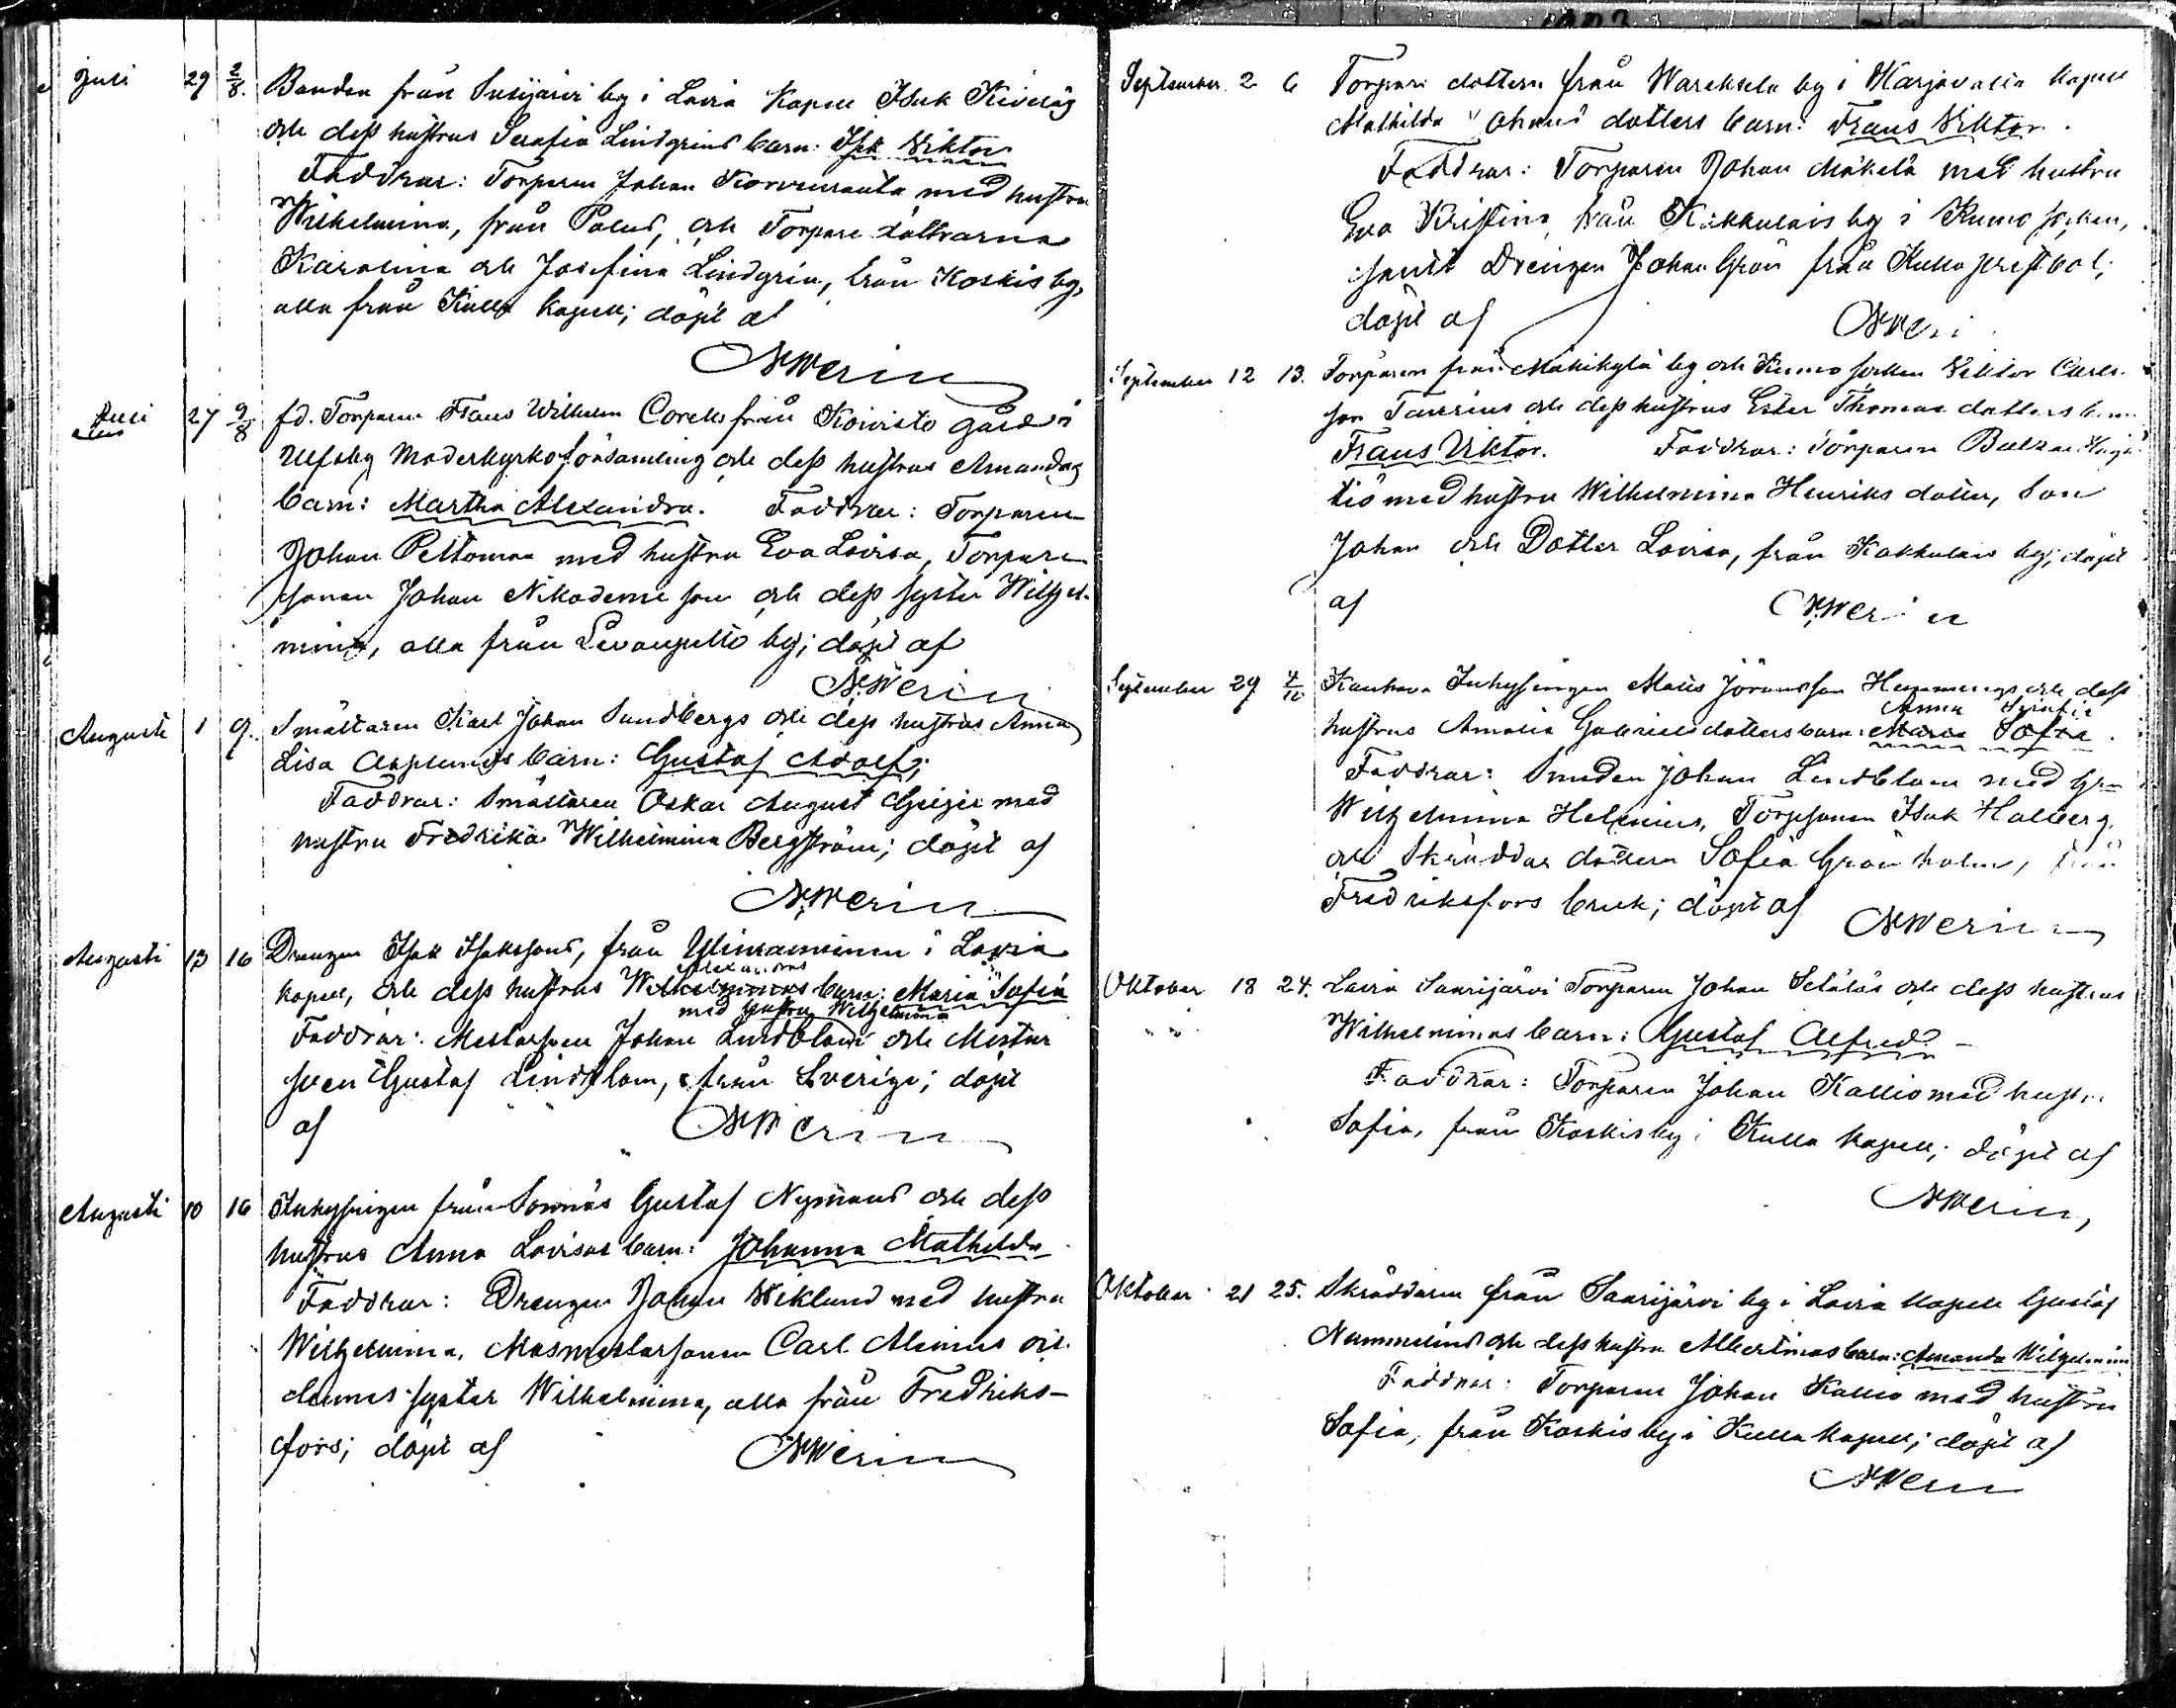 Juli 29 2/8. Bonden från Susijärvi by i Lavia Kapell Isak Kiviniäs
och dess hustrus Serafia Lindgrens barn: Isak Viktor
Faddrar: Torparen Johan Korvenrauta med hustru
Wilhelmina, från Palus, och Torpare döttrarna
Karolina och Josefina Lindgrén, från Koskis by,
alla från Kulla kapell; döpt af
NWerin
Juli 27 9/8 fd. Torparen Frans Wilhelm Corells från Koivisto gård i
Ulfsby Moderkyrkoförsamling och dess hustrus Amandas
barn: Martha Alexandra. Faddrar: Torparen
Johan Peltomaa med hustru Eva Lovisa, Torpare
sonen Johan Nikodemi son och dess syster Wilhel-
mina, alla från Levanpelto by; döpt af
NWerin
Augusti 1 9. Smältaren Karl Johan Sundbergs och dess hustrus Anna
Lisa Asplunds barn: Gustaf Adolf;
Faddrar: Smältaren Oskar August Geijer med
hustru Fredrika Wilhelmina Bergström; döpt af
NWerin
Augusti 13 16 Drengen Isak Isakssons, från i Lavia
Alexandras
kapell, och dess hustrus Wilhelminas barn: Maria Sofia
med hustru Wilhelmina
Faddrar: Johan Lindblom och Mäster
sven Gustaf Lindblom, från Sverige; döpt
af NWerin
Augusti 10 16 Inhysingen från Sonnäs Gustaf Nymans och dess
hustrus Anna Lovisas barn: Johanna Mathilda
Faddrar: Drengen Johan Wiklund med hustru
Wilhelmina, Masmästarsonen Carl Alenius och
dennes syster Wilhelmina, alla från Fredriks-
fors; döpt af NWerin
September 2 6 Torpare dottern från Wareksela by i Harjavalta kapell
Mathilda Johans dotters barn: Frans Viktor.
Faddrar: Torparen Johan Mäkelä med hustru
Eva Kristina från Kakkulais by i Kumo socken,
samt Drengen Johan Grön från Kulla prestbol;
döpt af NWeri
September 12 13. Torparen från Mäkikylä by och Kumo socken Viktor Carls
son och dess hustrus Ester Thomas dotters barn
Frans Viktor. Faddrar: Torparen
med hustru Wilhelmina Henriks dotter, Son
Johan och Dotter Lovisa, från Kakkulais by; döpt
af NWerin
September 29 4/10 Kauhava Inhysingen Matts Göransson Hemmings och dess
Anna Serafia
hustrus Amalia Gabriels dotters barn: Maria Sofia.
Faddrar: Smeden Johan Lindblom med hu
Wilhelmina Helenius, Torpsonen Isak Hallberg,
och Skräddar dottern Sofia Grönholm, från
Fredriksfors bruk; döpt af NWerin
Oktober 18 24. Lavia Saarijärvi Torparen Johan och dess hustrus
Wilhelminas barn: Gustaf Alfred
Faddrar: Torparen Johan Kallio med hustru
Sofia, från Koskis by i Kulla kapell; döpt af
NWerin,
Oktober 21 25. Skräddaren från Saarijärvi by i Lavia kapell Gustaf
Nummelins och dess hustru Albertinas barn: Amanda Wilhelmin
Faddrar: Torparen Johan Kallio med hustru
Sofia, från Koskis by i Kulla kapell; döpt af
NWerin